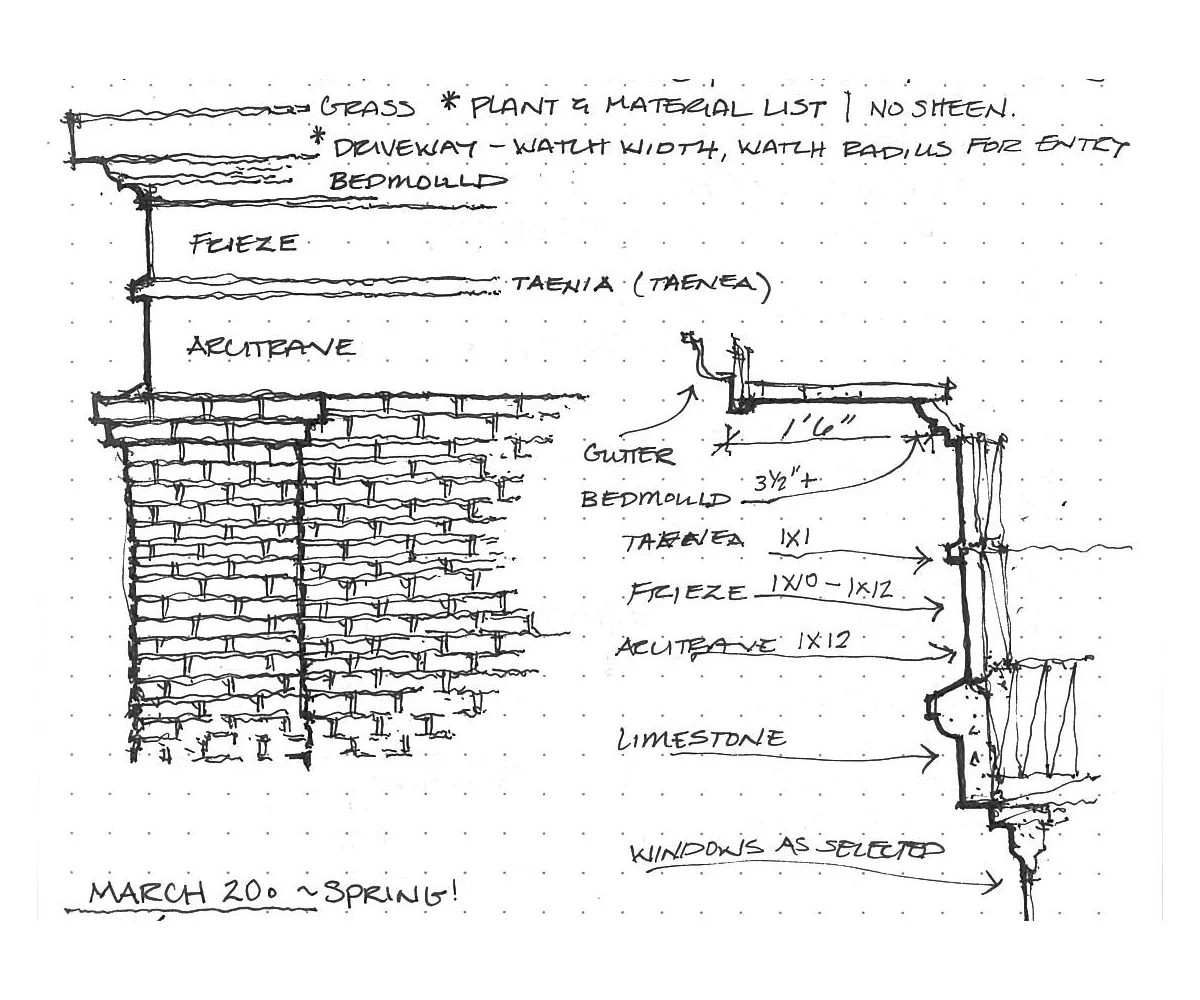 GRASS * PLANT & MATERIAL LIST | NO SHEEN.
* DRIVEWAY - WATCH WIDTH, WATCH RADIUS FOR ENTRY
BEDMOULD
FRIEZE
TAENIA (TAENEA)
ARCITRAVE
1'6"
GUTTER
BEDMOULD 3½"+
TAENEA 1X1
FRIEZE 1X10 - 1X12
ARCITRAVE 1X12
LIMESTONE
WINDOWS AS SELECTED
MARCH 20. ~SPRING!